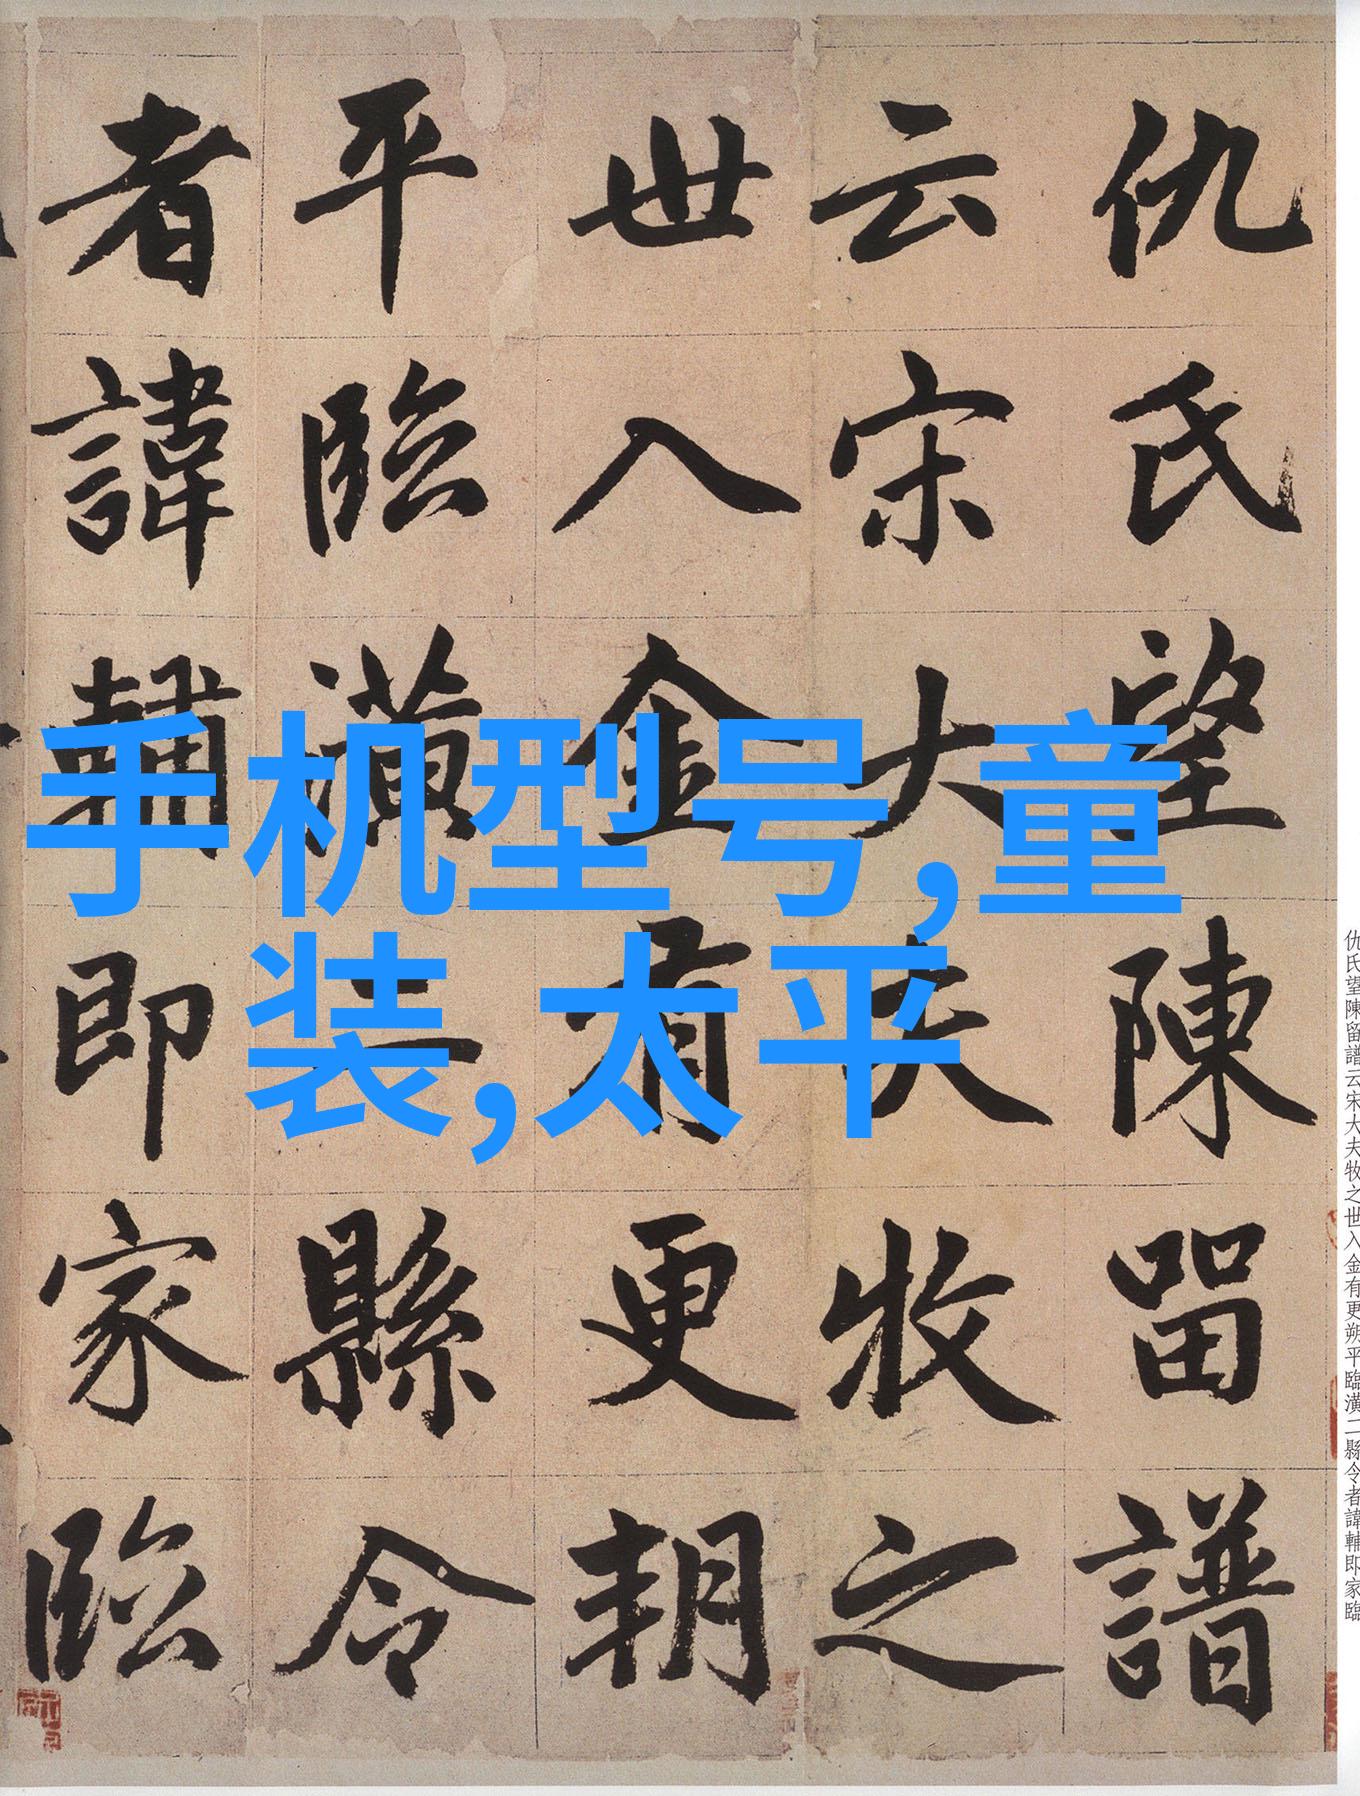 仇氏望陳留譜
云宋大夫牧之
世入金有更朔
平臨潢二縣令
者諱輔即家臨
手机型号,童
装,太平
仇氏望陳留譜云宋大夫牧之世入金有更朔平臨潢二縣令者諱輔即家臨